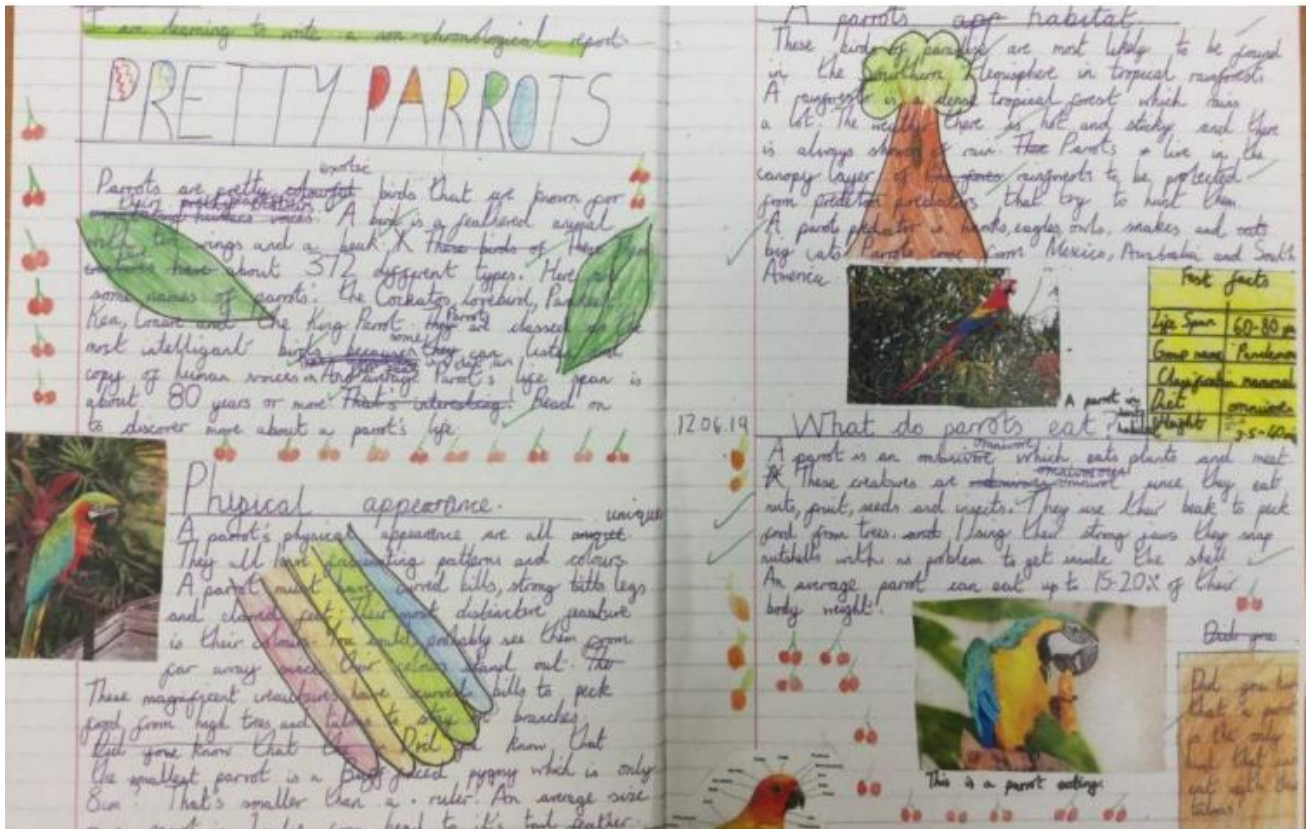 I am learning to write a non-chronological report
PRETTY PARROTS
exotic
Parrots are pretty colourful birds that are known for
their
human voices. A bird is a feathered animal
with two wings and a beak. These
about 372 different types. Here are
some names of parrots: the Cockatoo, Lovebird, Parakeet,
Kea, and the King Parrot. Parrots are classed as the
some
most intelligent birds because they can listen and
copy of human voices. An average Parrot's life span is
about 80 years or more. That's interesting. Read on
to discover more about a parrot's life
Physical appearance.
unique
A parrot's physical appearance are all
They all have fascinating patterns and colours.
A parrot must have curved bills, strong legs
and clawed feet. Their most distinctive feature
is their colour. You could probably see them from
far array since their colours stand out. The
These magnificent creatures have curved bills to peck
food from high trees and talons to stay on branches.
Did you know that the Did you know that
the smallest parrot is a Buff faced pygmy which is only
8cm. That's smaller than a ruler. An average size
from head to it's tail feather
A parrots habitat.
These birds of paradise are most likely to be found
in the Southern Hemisphere in tropical rainforests
A rainforests is a dense tropical forest which rains
a lot. The there is hot and sticky and there
is always shower of rain. Parrots live in the
canopy layer of rainforests to be protected
from predators that try to hunt them
A parrot predator is hawks, eagles, owls, snakes and
big cats. Parrots come from Mexico, Australia and South
America
Fast facts
Life Span 60-80
Group name Pandemon
Classification mammal
Diet omnivores
Weight
A parrot
12.06.19
What do parrots eat?
omnivore
A parrot is an which eats plants and meat
These creatures are since they eat
nuts, fruit, seeds and insects. They use their beak to peck
food from trees. and Using their strong jaws they snap
nutshells with no problem to get inside the shell
An average parrot can eat up to 15-20% of their
body weight.
Did you
Did you know
that a parrot
is the only
bird that can
eat with their
talons
This is a parrot eating.